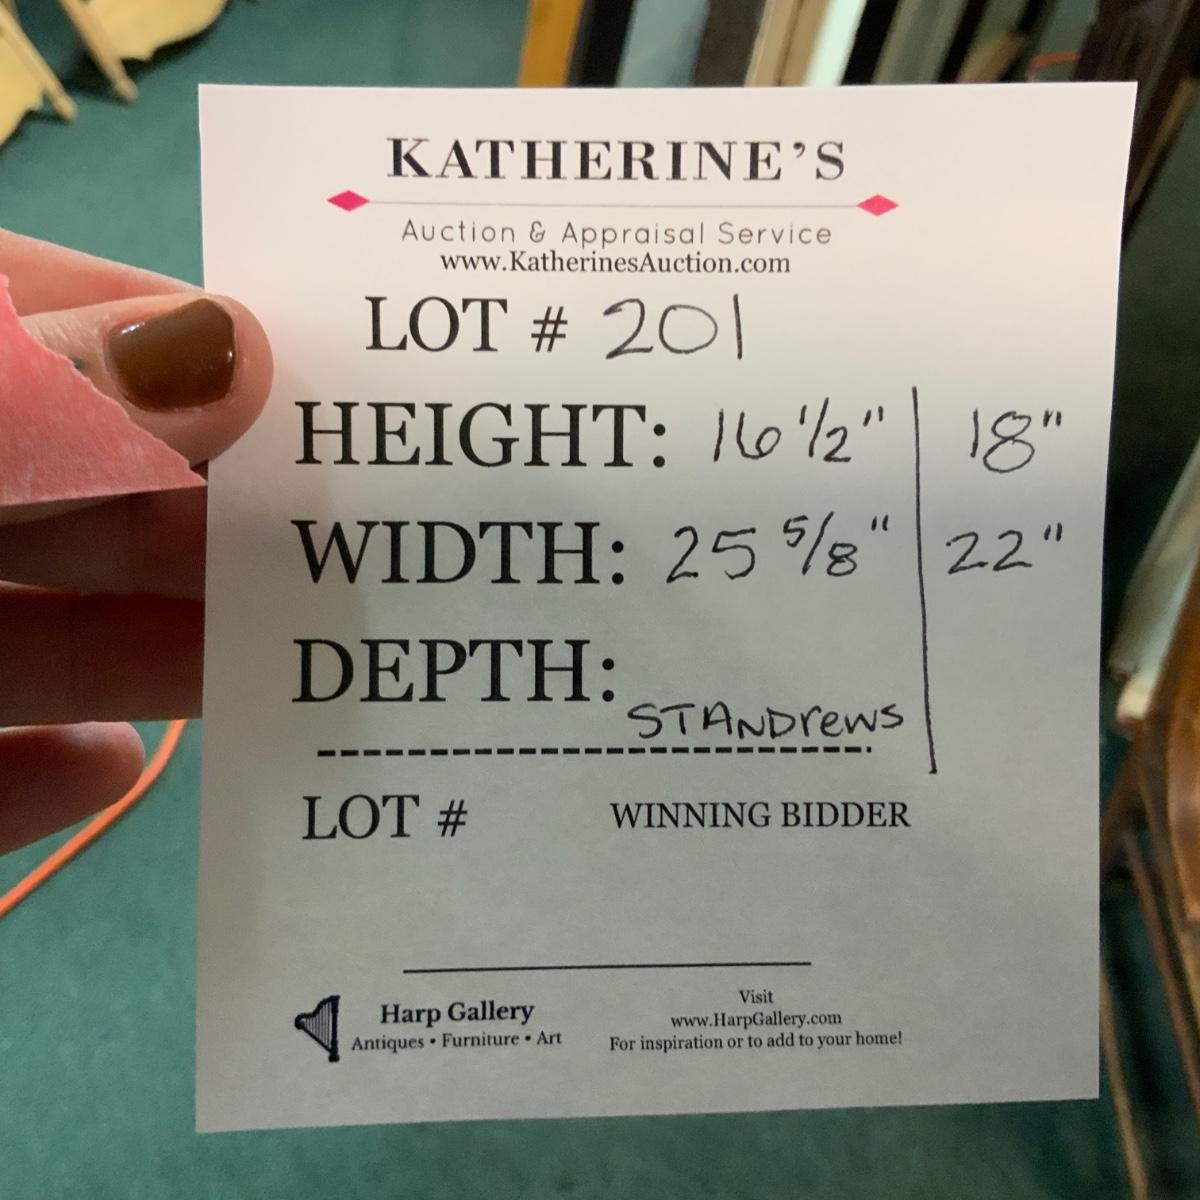 KATHERINE'S
Auction & Appraisal Service
www.KatherinesAuction.com
LOT # 201
HEIGHT: 16 1/2" 18"
WIDTH: 25 5/8" 22"
DEPTH:
STANDrewS
LOT # WINNING BIDDER
Harp Gallery
Antiques • Furniture • Art
Visit
www.HarpGallery.com
For inspiration or to add to your home!